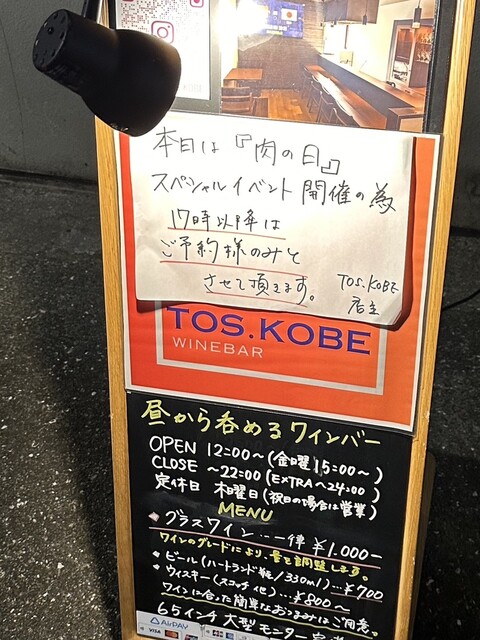 本日は『肉の日』
スペシャルイベント開催の為
17時以降は
ご予約様のみと
させて頂きます。
TOS.KOBE
店主
TOS.KOBE
WINEBAR
昼から呑めるワインバー
OPEN 12:00～(金曜15:00～)
CLOSE ～22:00(EXTRA～24:00)
定休日 木曜日(祝日の場合は営業)
MENU
グラスワイン…一律 ¥1.000-
ワインのグレードにより、量を調整します。
・ビール(ハートランド瓶/330ml)…¥700
・ウィスキー(スコッチ他)…¥800～
ワインに合った簡単なおつまみはご用意
AirPAY
65インチ大型モニター
VISA
JCB